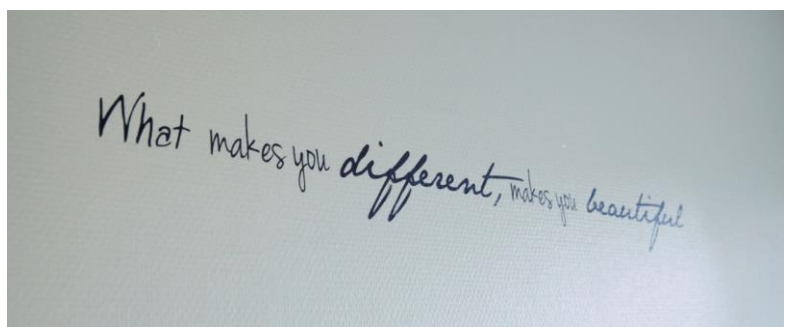 What makes you different, makes you beautiful